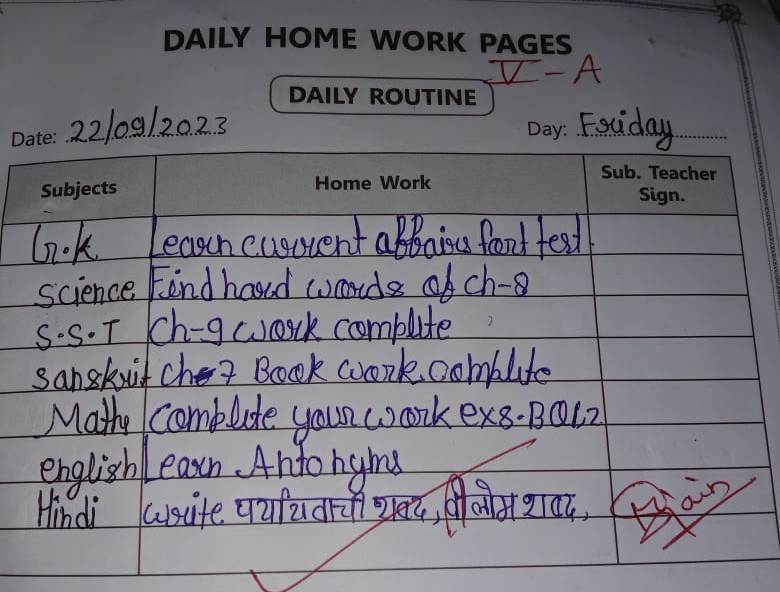 DAILY HOME WORK PAGES
V-A
DAILY ROUTINE
Date: 22/09/2023 Day: Friday
Subjects Home Work Sub. Teacher Sign.
G.K. Learn current affairs for test.
Science Find hard words of ch-8
S.S.T Ch-9 work complete
Sanskrit ch-7 Book work complite
Maths complete your work ex 8.B Q1,2
english Learn Antonyms
Hindi write पर्यायवाची शब्द, वीलोम शब्द,